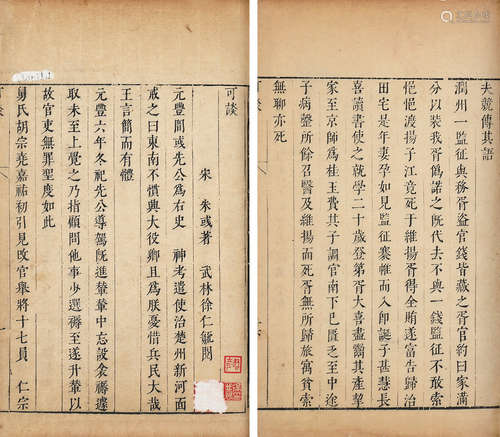 夫競傳其語
潤州一監征與務胥盜官錢皆藏之胥官約曰家滿
分以裝我胥僞諾之既代去不與一錢監征不敢索
悒悒渡揚子江竟死于維揚胥得全賄遂富告歸治
田宅是年妻孕如見監征褰帷而入即誕子甚慧長
喜讀書使之就學二十歲登第胥大喜盡鬻其產挈
家至京師爲桂玉費其子調官南下已匱乏至中途
子病罄所餘召醫及維揚而死胥無所歸旅寓貧索
無聊亦死
可談
宋 朱或著 武林徐仁毓閱
元豐間或先公爲右史 神考遣使治楚州新河面
戒之曰東南不慣興大役卿且爲朕憂惜兵民大哉
王言簡而有體
元豐六年冬祀先公導駕既進輦輦中忘設衾褥遽
取未至上覺之乃指顧問他事少選褥至遂升輦以
故官吏無罪聖度如此
舅氏胡宗堯嘉祐初引見改官舉將十七員 仁宗